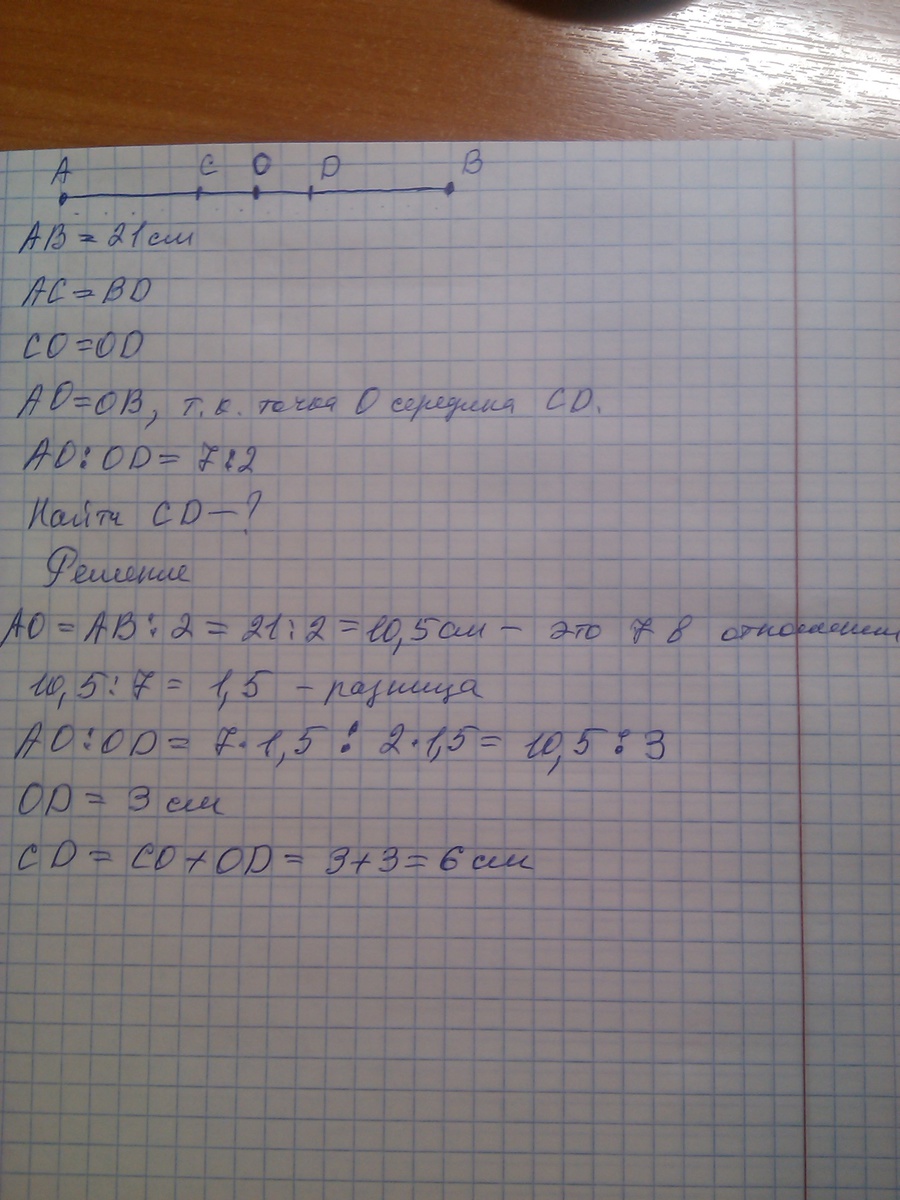 A C O D B
AB = 21 см
AC = BD
CO = OD
AO = OB, т.к. точка O середина CD.
AO : OD = 7:2
Найти CD — ?
Решение
AO = AB : 2 = 21 : 2 = 10,5 см – это 7 в отношении
10,5 : 7 = 1,5 – разница
AO : OD = 7·1,5 : 2·1,5 = 10,5 : 3
OD = 3 см
CD = CO + OD = 3+3 = 6 см